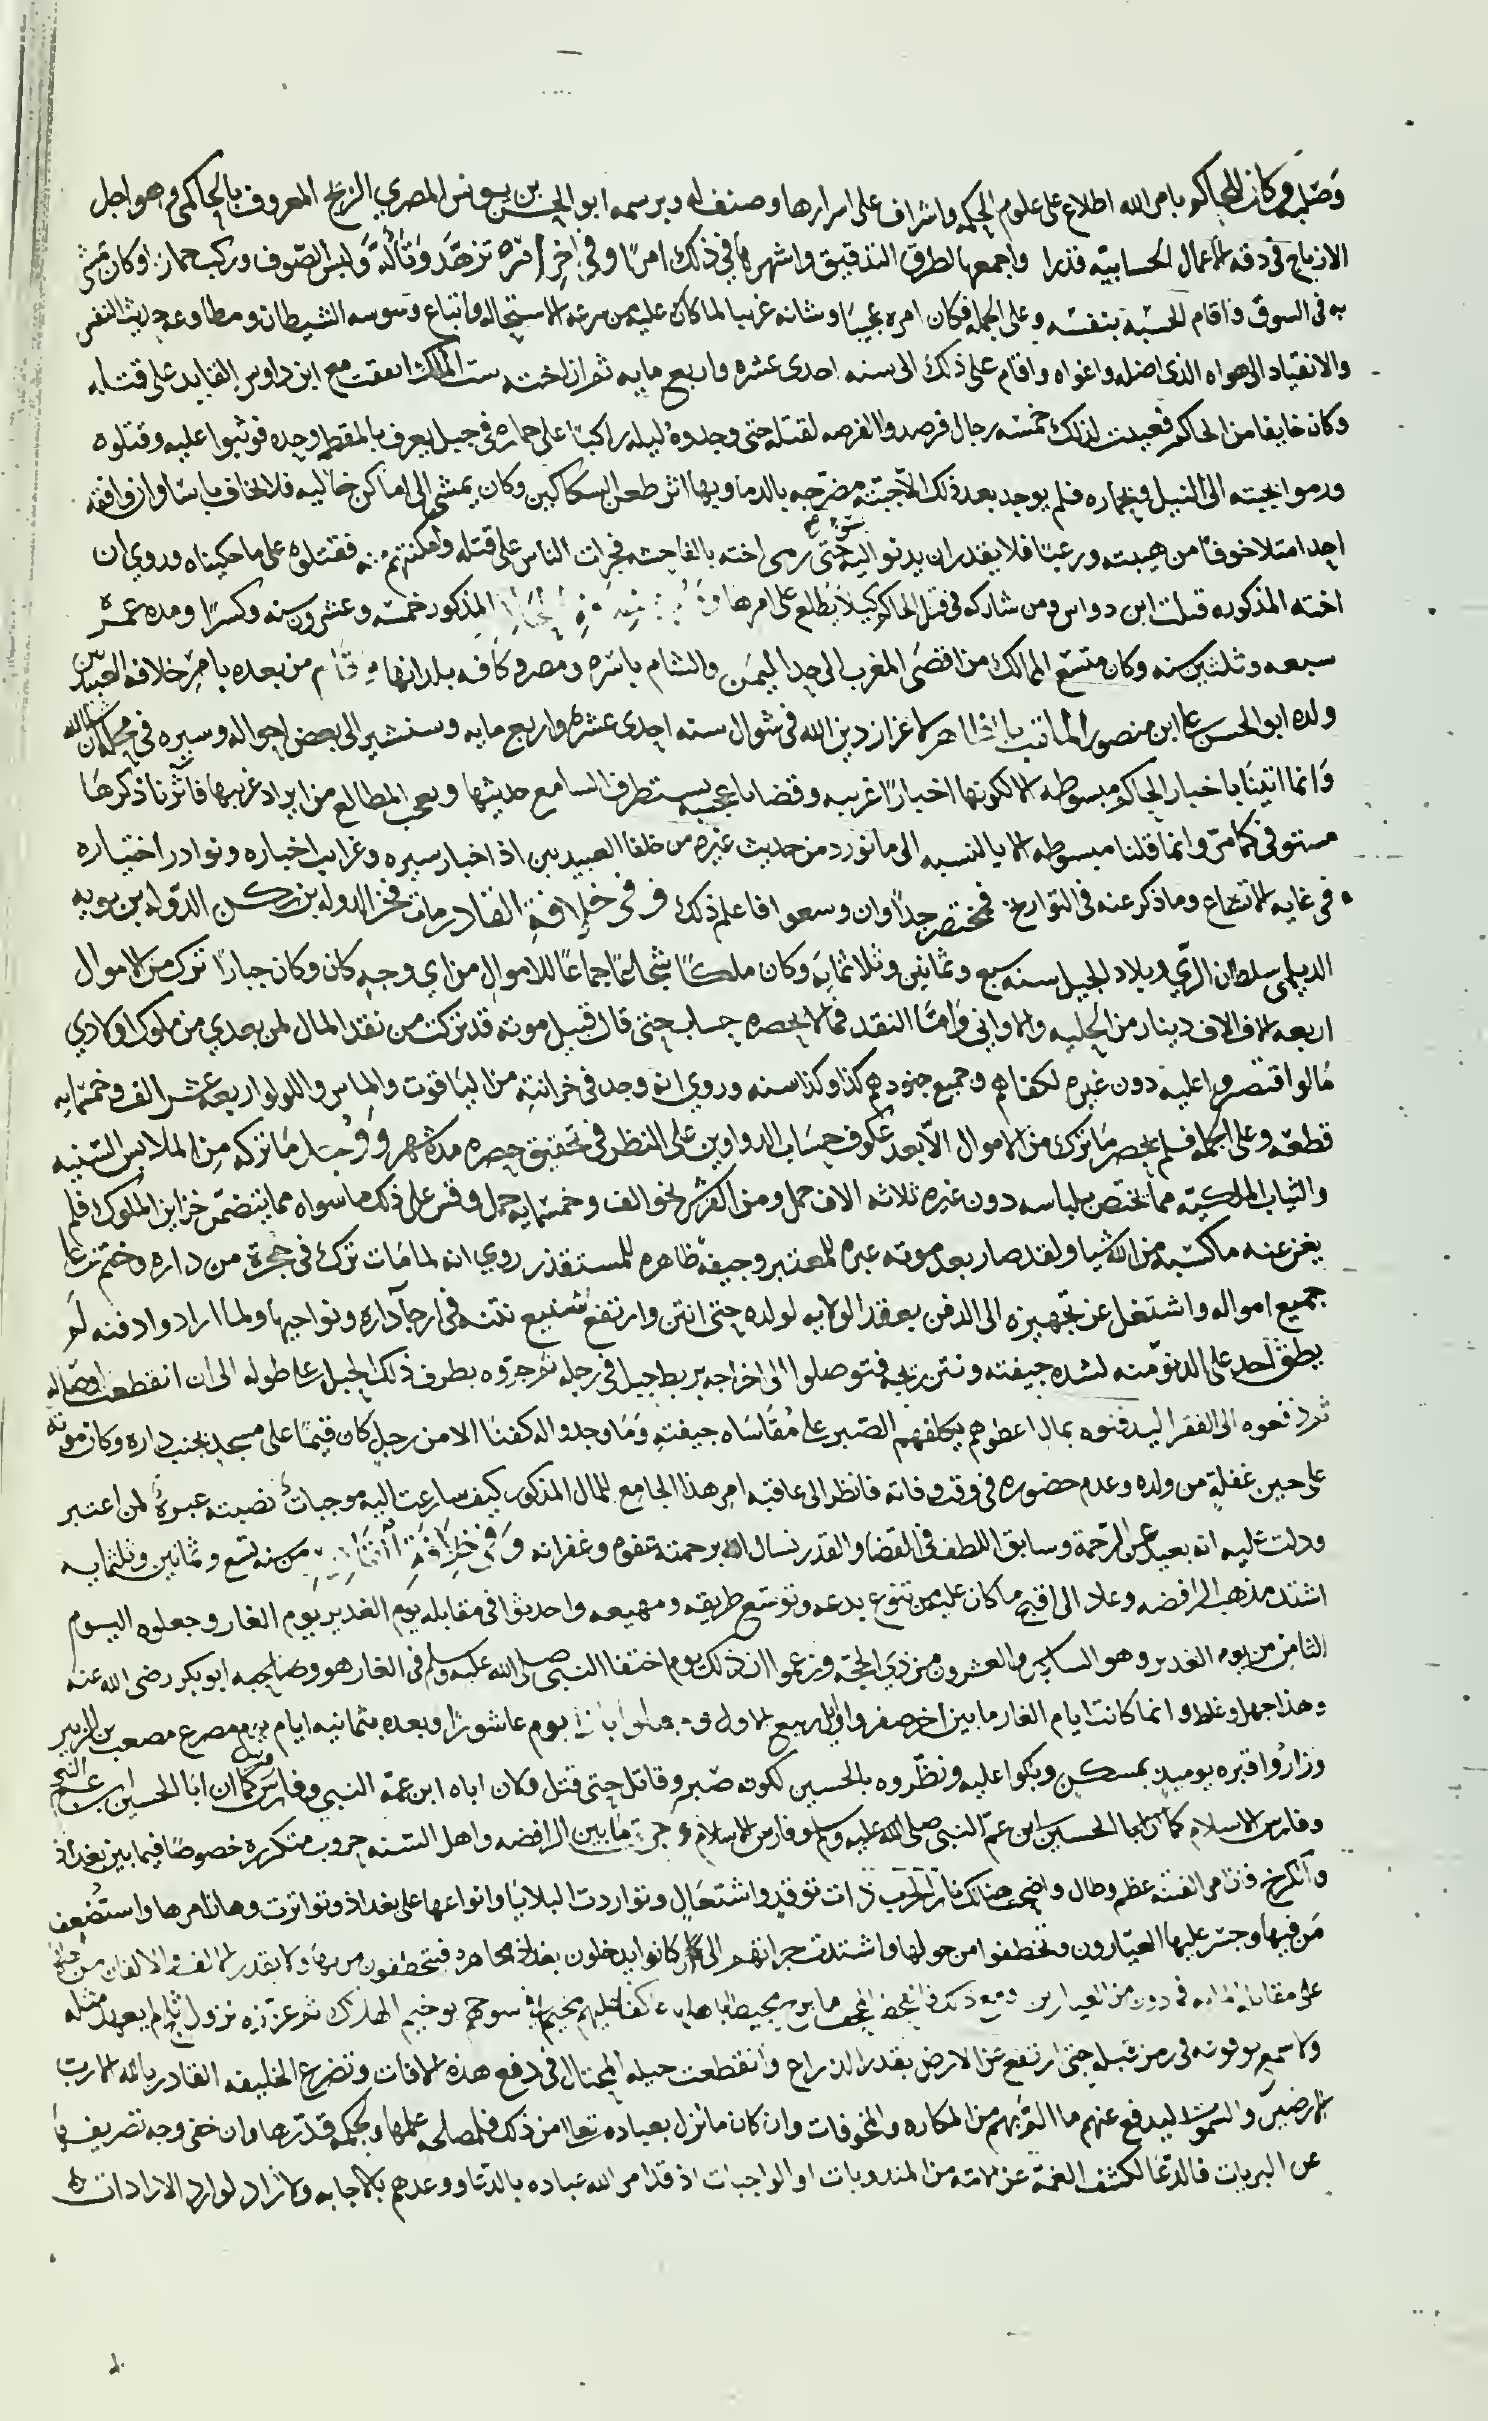 وصلبه وكان للحاكم بامر الله اطلاع على علوم الحكمه واشراف على اسرارها وصنف له وبرسمه ابو الحسن بن يونس المصري الزيج المعروف بالحاكمي وهو اجل
الازياج في دقه الاعمال الحسابيه قدرا واجمعها لطرق التدقيق واشهرها في ذلك امرا وفي اخر امره تزهد وتأله ولبس الصوف وركب حمارا وكان يمشي
به في السوق واقام الحسبة بنفسه وعلى الجمله فكان امره عجيبا وشانه غريبا لما كان عليه من سرعه الاستحاله واتباع وسوسه الشيطان ومطاوعه حديث النفس
والانقياد الى هواه الذي اضله واغواه واقام على ذلك الى سنه احدى عشره واربع مايه ثم ان اخته ست الملك اتفقت مع ابن دواس القايد على قتله
وكان خايفا من الحاكم فعينت لذلك خمسه رجال فرصدوا الفرصه لقتله حتى وجدوه ليله راكبا على حماره في جبل يعرف بالمقطم وحده فوثبوا عليه وقتلوه
ورموا بجثته الى النيل وبحماره فلم يوجد بعد ذلك الا جبته مضرجه بالدما وبها اثر طعن السكاكين وكان يمشي الى اماكن خاليه فلا يخاف باسا وان وافقه
احد امتلا خوفا من هيبته ورعبا فلا يقدر ان يدنو اليه حتى رمى اخته بالفاحشه فجرات الناس على قتله وامكنتهم منه فقتلوه على ما حكيناه وروي ان
اخته المذكوره قتلت ابن دواس ومن شاركه في قتل الحاكم كيلا يطلع على امرها المذكور خمسه وعشرون سنه وكسرا ومده عمره
سبعه وثلثين سنه وكان متسع الممالك من اقصى المغرب الى حد اليمن والشام باسره ومصر وكافه بلدانها وقام من بعده بامر خلافه العبيديين
ولده ابو الحسن علي ابن منصور الملقب بالظاهر لاعزاز دين الله في شوال سنه احدى عشره واربع مايه وسنشير الى بعض احواله وسيره في محله ان شا الله
وانما اتينا باخبار الحاكم مبسوطه لا لكونها اخبارا غريبه وقضايا عجيبه يستطرف السامع حديثها ويعجب المطالع من ايراد غريبها فاثرنا ذكرها
مستوفى كما مر وانما قلنا مبسوطه الا بالنسبه الى ما نورد من حديث غيره من خلفا العبيديين اذ اخبار سيره وغرايب اخباره ونوادر اختياره
في غايه الاتساع وما ذكر عنه في التواريخ فمختصر جدا وان وسعوا فاعلم ذلك وفي خلافة القادر مات فخر الدوله ابن ركن الدوله بن بويه
الديلمي سلطان الري وبلاد الجبل سنه سبع وثمانين وثلاثمايه وكان ملكا شجاعا جماعا للاموال من اي وجه كان وكان جبارا ترك من الاموال
اربعه الاف الاف دينار من الحليه والاواني واما النقد فما لا يحصره حساب حتى قال قبيل موته قد تركت من نقد المال لمن بعدي من ملوك اولادي
ما لو اقتصروا عليه دون غيره لكفاهم وجميع جنودهم كذا وكذا سنه وروي انه وجد في خزانته من الياقوت والماس واللولو اربعه عشر الف وخمسمايه
قطعه وعلى الجمله فلم يحصر ما ترك من الاموال الا بعد عكوف حساب الدواوين على النظر في تحقيق حصره مدة شهر ووجد ما تركه من الملابس السنيه
والثياب الملكيه مما يختص بلباسه دون غيره ثلاثه الاف حمل ومن الفرش نحو الف وخمسمايه حمل وقس على ذلك ما سواه مما يتضمن خزاين الملوك فلم
يغن عنه ما كسبه من الله شيا ولقد صار بعد موته عبره للمعتبر وجيفة ظاهره للمستقذر روي انه لما مات ترك في حجرة من داره وختم على
جميع امواله واشتغل عن تجهيزه الى الدفن بعقد الولايه لولده حتى انتن وارتفع شنيع نتنه في ارجآ داره ونواحيها ولما ارادوا دفنه لم
يطق احد على الدنو منه لشده جيفته ونتن ريحه فتوصلوا الى اخراجه بربط حبل في رجله ثم جروه بطرف ذلك الحبل على طوله الى ان انقطعت اوصاله
ثم دفعوه الى الفقرا ليدفنوه بمال اعطوهم يكلفهم الصبر على مقاساه جيفته وما وجدوا له كفنا الا من رجل كان قيما على مسجد بجنب داره وكان موته
على حين غفلة من ولده وعدم حضوره في وقت وفاته فانظر الى عاقبه امر هذا الجامع للمال المذكور كيف سارعت اليه موجبات نصبته عبرة لمن اعتبر
ودلت عليه انه بعيد عن الرحمة وسابق اللطف في القضا والقدر نسال الله برحمته عفوه وغفرانه وفي خلافة القادر من سنه تسع وثمانين وثلثمايه
اشتد مذهب الرافضه وعاد الى اقبح ما كان عليه من تنوع بدعه وتوسع طريقه ومهيعه واحدثوا في مقابله يوم الغدير يوم الغار وجعلوه اليوم
الثامن من يوم الغدير وهو السادس والعشرون من ذي الحجة وزعموا ان ذلك يوم اختفا النبي صلى الله عليه وسلم في الغار هو وصاحبه ابو بكر رضي الله عنه
وهذا جهل وغلط وانما كانت ايام الغار ما بين اخر صفر واوائل ربيع الاول وجعلوا بازا يوم عاشورا وبعده بثمانيه ايام يوم مصرع مصعب بن الزبير
وزاروا قبره يوميذ بمسكن وبكوا عليه ونظروه بالحسين لكونه صبر وقاتل حتى قتل وكان اباه ابن عمة النبي وفارس كما ان ابا الحسين ابن عم النبي
وفارس الاسلام كما ان ابا الحسين ابن عم النبي صلى الله عليه وسلم وفارس الاسلام وجرت ما بين الرافضه واهل السنه حروب متكرره خصوصا فيما بين بغداد
والكرخ فان امر الفتنه عظم وطال واضحت هنالك نار الحرب ذات توقد واشتعال وتواردت البلايا وانواعها على بغداذ وتواترت وهان امرها واستضعف
من فيها وجسر عليها العيارون وتخطفوا من حولها واشتدت جراتهم الى ان كانوا يدخلون بغداد مجاهره فيتخطفون من بها ولا يقدر الالف والالفان من
على مقابله في دون من العيارين ومع ذلك ثم عززه نزول ثلج لم يعهد مثله
ولا سمع بوقوعه في زمن قبله حتى ارتفع عن الارض بقدر الذراع وانقطعت حيله المحتال في دفع هذه الافات وتضرع الخليفه القادر بالله الى رب
الارضين والسموات ليدفع عنهم ما الم بهم من المكاره والمخوفات وان كان ما نزل بعباده تعالى من ذلك فلمصلحه علمها وبحكمه قدرها وان خفي وجه تصريفها
عن البريات فالدعا لكشف الغمة عن الامه من المندوبات او الواجبات اذ قد امر الله عباده بالدعا ووعدهم بالاجابه ولا راد لوارد الارادات